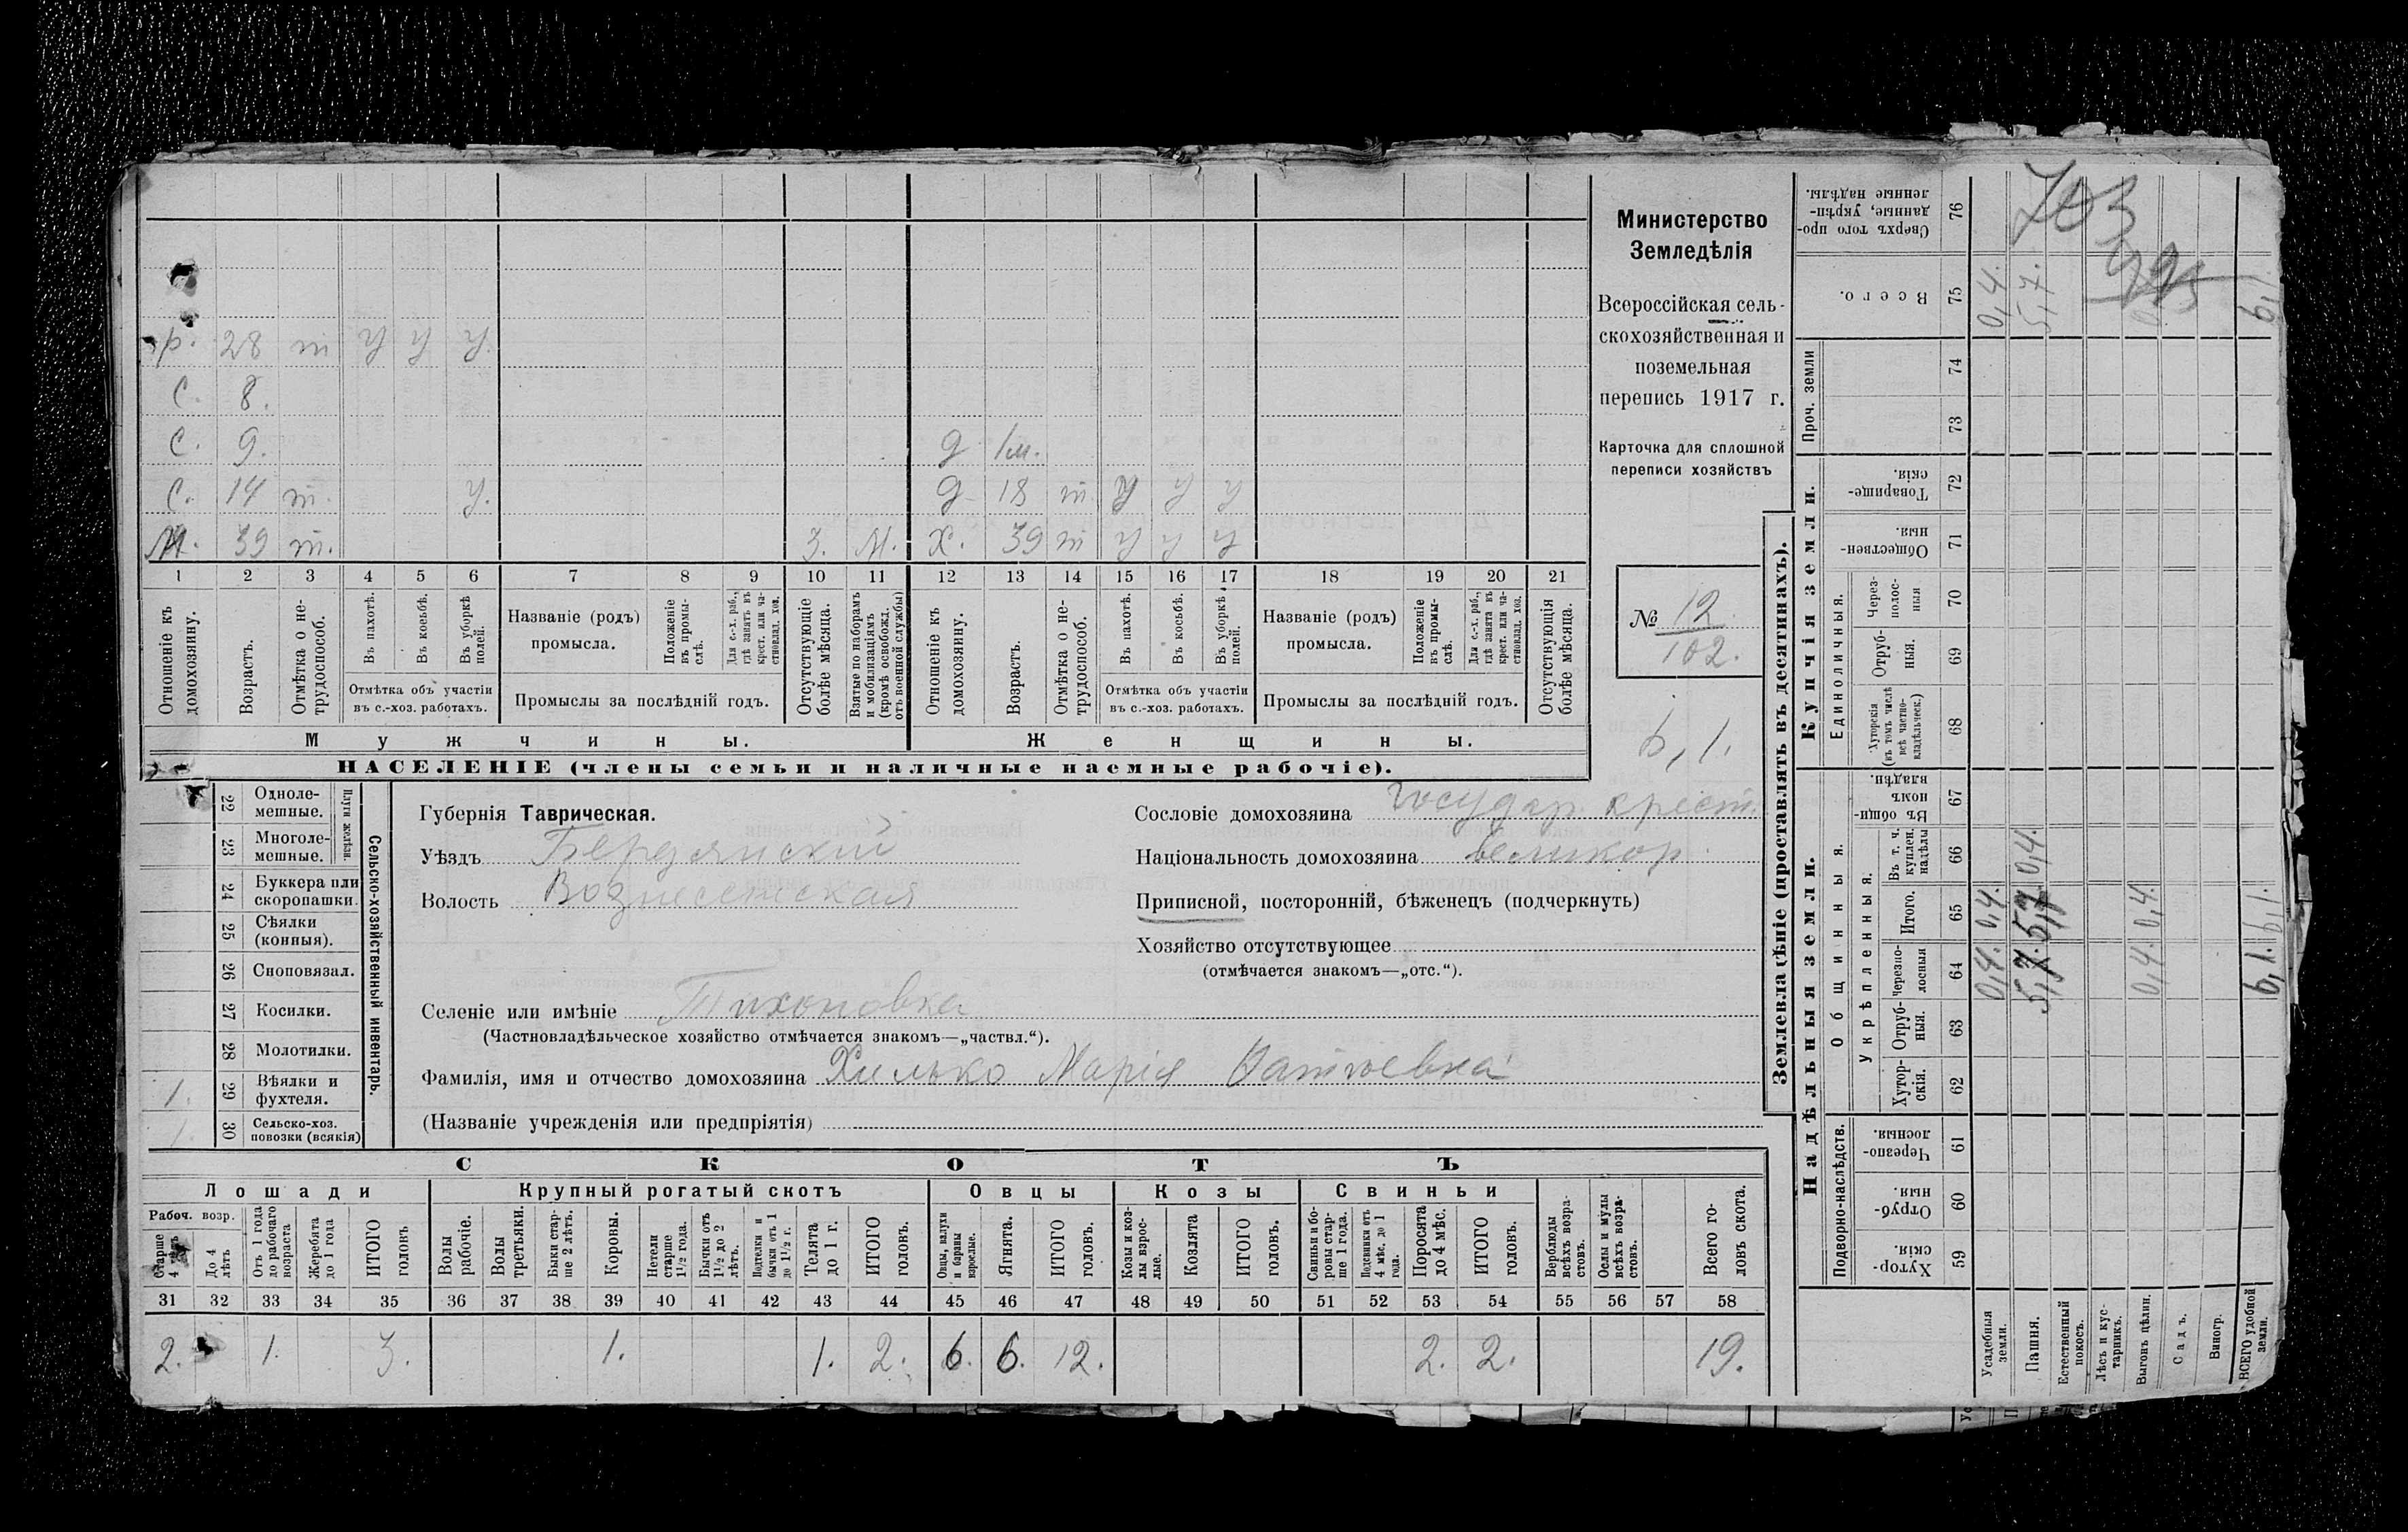 р. 28 т у у у.
С. 8.
С. 9. д 1м.
С. 14 т. у. д 18 т. у у у
М. 39 т. З. М. Х. 39 т у у у
1 2 3 4 5 6 7 8 9 10 11 12 13 14 15 16 17 18 19 20 21
Отношеніе къ домохозяину.
Возрастъ.
Отмѣтка о нетрудоспособ.
Въ пахотѣ.
Въ косьбѣ.
Въ уборкѣ полей.
Отмѣтка объ участіи
въ с.-хоз. работахъ.
Названіе (родъ)
промысла.
Положеніе въ промыслѣ.
Для с.-х. раб., гдѣ занятъ въ крест. или частновлад. хоз.
Промыслы за послѣдній годъ.
Отсутствующіе болѣе мѣсяца.
Взятые по наборамъ и мобилизаціямъ (кромѣ освобожд. отъ военной службы)
Отношеніе къ домохозяину.
Возрастъ.
Отмѣтка о нетрудоспособ.
Въ пахотѣ.
Въ косьбѣ.
Въ уборкѣ полей.
Отмѣтка объ участіи
въ с.-хоз. работахъ.
Названіе (родъ)
промысла.
Положеніе въ промыслѣ.
Для с.-х. раб., гдѣ занята въ крест. или частновлад. хоз.
Промыслы за послѣдній годъ.
Отсутствующія болѣе мѣсяца.
Мужчины. Женщины.
НАСЕЛЕНІЕ (члены семьи и наличные наемные рабочіе).
Министерство
Земледѣлія
Всероссійская сель-
скохозяйственная и
поземельная
перепись 1917 г.
Карточка для сплошной
переписи хозяйствъ
№ 12
102.
6,1.
Сельско-хозяйственный инвентарь.
Плуги желѣзн.
22 Одноле-
мешные.
23 Многоле-
мешные.
24 Буккера или
скоропашки.
25 Сѣялки
(конныя).
26 Сноповязал.
27 Косилки.
28 Молотилки.
1. 29 Вѣялки и
фухтеля.
1. 30 Сельско-хоз.
повозки (всякія)
Губернія Таврическая.
Уѣздъ Бердянскій
Волость Вознесенская
Селеніе или имѣніе Тихоновка
(Частновладѣльческое хозяйство отмѣчается знакомъ—„частвл.“).
Фамилія, имя и отчество домохозяина Хилько Марія
(Названіе учрежденія или предпріятія)
Сословіе домохозяина государ. крест.
Національность домохозяина великор.
Приписной, посторонній, бѣженецъ (подчеркнуть)
Хозяйство отсутствующее
(отмѣчается знакомъ—„отс.“).
СКОТЪ
Лошади Крупный рогатый скотъ Овцы Козы Свиньи
Рабоч. возр.
Старше 4 лѣтъ
До 4 лѣтъ
Отъ 1 года до рабочаго возраста
Жеребята до 1 года
ИТОГО головъ
Волы рабочіе.
Волы третьяки.
Быки старше 2 лѣтъ.
Коровы.
Нетели старше 1½ года.
Бычки отъ 1½ до 2 лѣтъ.
Подтелки и бычки отъ 1 до 1½ г.
Телята до 1 г.
ИТОГО головъ.
Овцы, валухи и бараны взрослые.
Ягнята.
ИТОГО головъ.
Козы и козлы взрослые.
Козлята
ИТОГО головъ.
Свиньи и боровы старше 1 года.
Подсвинки отъ 4 мѣс. до 1 года.
Поросята до 4 мѣс.
ИТОГО головъ.
Верблюды всѣхъ возрастовъ.
Ослы и мулы всѣхъ возрастовъ.
Всего головъ скота.
31 32 33 34 35 36 37 38 39 40 41 42 43 44 45 46 47 48 49 50 51 52 53 54 55 56 57 58
2. 1. 3. 1. 1. 2. 6. 6. 12. 2. 2. 19.
Землевладѣніе (проставлять въ десятинахъ).
Надѣльныя земли. Купчія земли.
Проч. земли
Подворно-наслѣдств.
Общинныя.
Укрѣпленныя.
Единоличныя.
Сверхъ того проданные, укрѣпленные надѣлы. 76
Всего. 75 0,4. 5,7. 6,1
74
73
Товарищескія. 72
Общественныя. 71
Черезполосныя 70
Отрубныя. 69
Хуторскія (въ томъ числѣ всѣ частновладѣльческ.) 68
Въ общинномъ владѣн. 67
Въ т. ч. куплен. надѣлы 66 0,4.
Итого. 65 0,4. 5,7 0,4. 6,1.
Черезполосныя 64 0,4. 5,7. 0,4. 6,1.
Отрубныя. 63
Хуторскія. 62
Черезполосныя. 61
Отрубныя. 60
Хуторскія. 59
Усадебныя земли.
Пашня.
Естественный покосъ.
Лѣсъ и кустарникъ.
Выгонъ цѣлин.
Садъ.
Виногр.
ВСЕГО удобной земли.
703